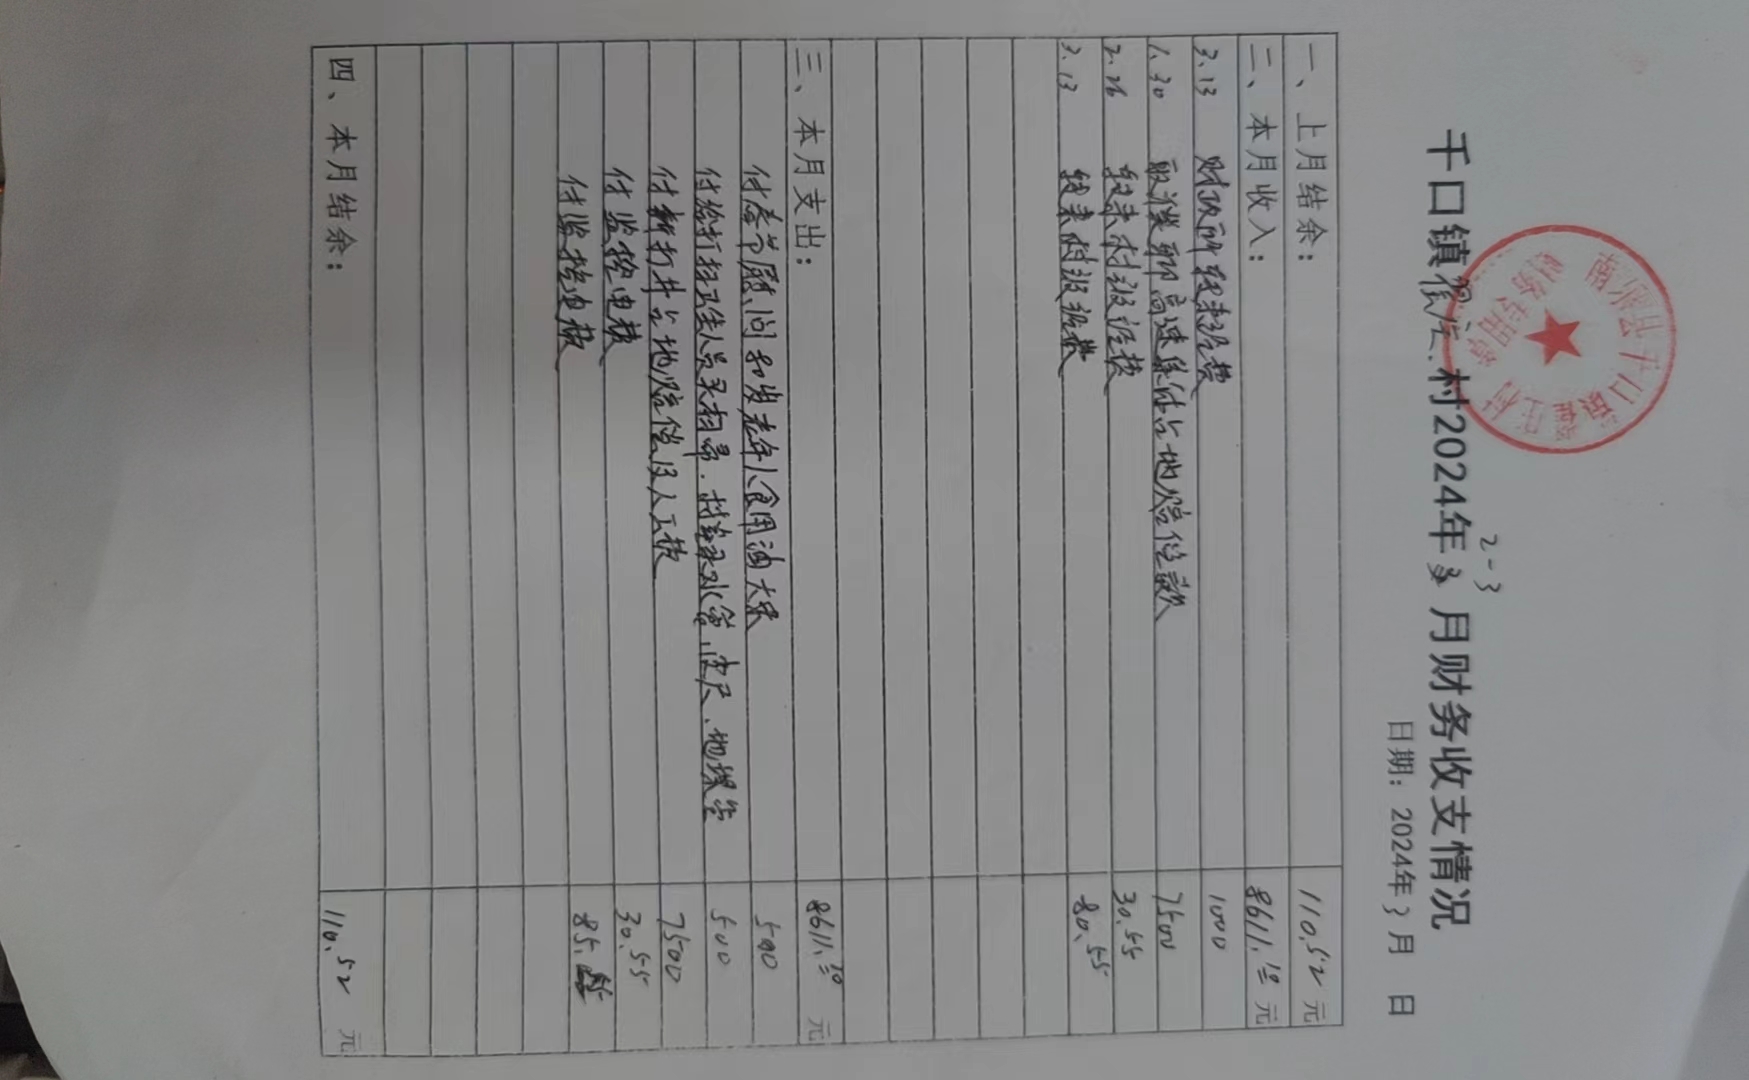 千口镇翟庄村2024年2-3月财务收支情况
日期：2024年3月 日
一、上月结余： 110.52元
二、本月收入： 8611.10元
3.13 财政所转来经费 1000
1.30 聊高速 占地赔偿款 7500
2.26 转来村级经费 30.55
3.13 转来村级经费 80.55
三、本月支出： 8611.10元
付春节慰问80岁老年人食用油大米 500
付给打扫卫生人员买扫帚、 买水管、皮尺、地埋 500
付新打井占地赔偿及人工款 7500
付监控电费 30.55
付监控电费
四、本月结余： 110.52元